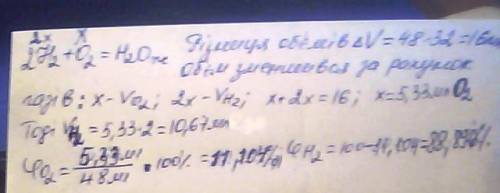 2x x
2H₂ + O₂ = H₂O Різниця обємів ΔV = 48-32 = 16мл
обєм зменшився за рахунок
газів: x - VO₂; 2x - VH₂; x+2x=16; x=5,33мл O₂
Тоді VH₂ = 5,33·2 = 10,67мл
φO₂ = 5,33мл / 48мл · 100% = 11,104% φH₂ = 100-11,104 = 88,896%